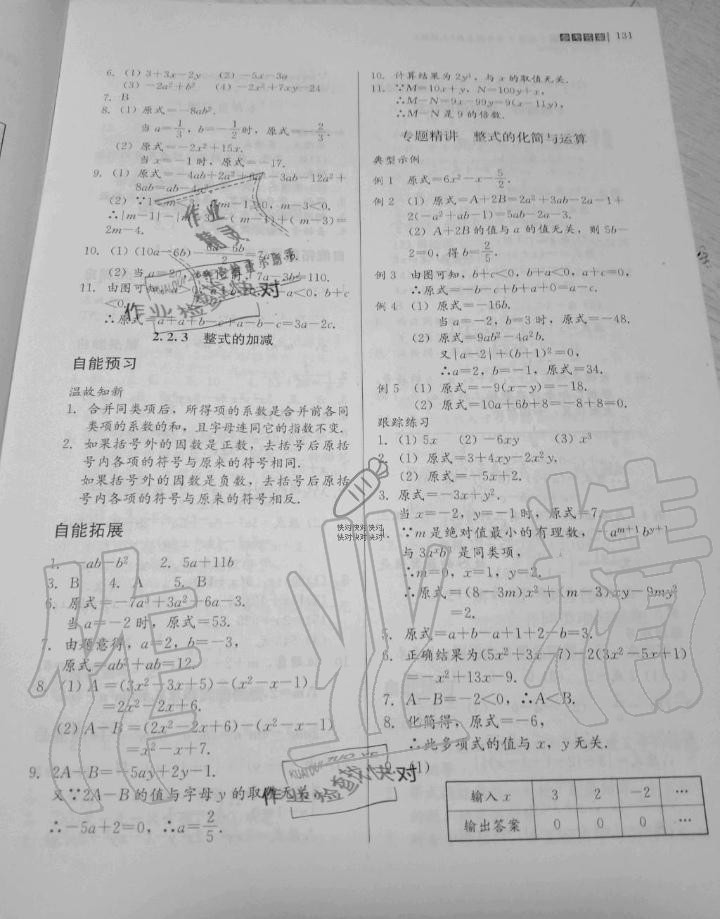 参考答案 131
6. (1) 3+3x-2y (2) -5x-3a
(3) -2a²+b² (4) -2x²+7xy-24
7. B
8. (1) 原式=-8ab².
当a=1/3, b=-1/2时, 原式=-2/3.
(2) 原式=-2x²+15x.
当x=-1时, 原式=-17.
9. (1) 原式=-4ab+2a²+ -3ab-12a²+
8ab=ab-
(2) ∵1 m-1>0, m-3<0.
∴|m-1|- =(m-1)+(m-3)=
2m-4.
10. (1) (10a-6b)-
(2) 当a=20, 7a-3b=110.
11. 由图可知 -a<0, b+c
<0.
∴原式=a+a+b-c+a-b-c=3a-2c.
2.2.3 整式的加减
自能预习
温故知新
1. 合并同类项后, 所得项的系数是合并前各同
类项的系数的和, 且字母连同它的指数不变.
2. 如果括号外的因数是正数, 去括号后原括
号内各项的符号与原来的符号相同.
如果括号外的因数是负数, 去括号后原括
号内各项的符号与原来的符号相反.
自能拓展
1. -ab-b² 2. 5a+11b
3. B 4. A 5. B
6. 原式=-7a³+3a²-6a-3.
当a=-2时, 原式=53.
7. 由题意得, a=2, b=-3,
原式=ab²+ab=12.
8. (1) A=(3x²-3x+5)-(x²-x-1)
=2x²-2x+6.
(2) A-B=(2x²-2x+6)-(x²-x-1)
=x²-x+7.
9. 2A-B=-5ay+2y-1.
又∵2A-B的值与字母y的取值无关,
∴-5a+2=0, ∴a=2/5.
10. 计算结果为2y³, 与x的取值无关.
11. ∵M=10x+y, N=100y+x,
∴M-N=9x-99y=9(x-11y),
∴M-N是9的倍数.
专题精讲 整式的化简与运算
典型示例
例1 原式=6x²-x-5/2.
例2 (1) 原式=A+2B=2a²+3ab-2a-1+
2(-a²+ab-1)=5ab-2a-3.
(2) A+2B的值与a的值无关, 则5b-
2=0, 得b=2/5.
例3 由图可知, b+c<0, b+a<0, a+c=0,
∴原式=-b-c+b+a+0=a-c.
例4 (1) 原式=-16b.
当a=-2, b=3时, 原式=-48.
(2) 原式=9ab²-4a²b.
又|a-2|+(b+1)²=0,
∴a=2, b=-1, 原式=34.
例5 (1) 原式=-9(x-y)=-18.
(2) 原式=10a+6b+8=-8+8=0.
跟踪练习
1. (1) 5x (2) -6xy (3) x³
2. (1) 原式=3+4xy-2x²y.
(2) 原式=-5x+2.
3. 原式=-3x+y².
当x=-2, y=-1时, 原式=7.
∵m是绝对值最小的有理数, -aᵐ⁺¹bʸ⁺¹
与3aˣb³是同类项,
∴m=0, x=1, y=2.
∴原式=(8-3m)x²+(m-3)xy-9my²
=2.
5. 原式=a+b-a+1+2-b=3.
6. 正确结果为(5x²+3x-7)-2(3x²-5x+1)
=-x²+13x-9.
7. A-B=-2<0, ∴A<B.
8. 化简得, 原式=-6,
∴此多项式的值与x, y无关.
输入x 3 2 -2 …
输出答案 0 0 0 …
快对快对快对
快对快对快对
作业检查快对
作业检查快对
作业精灵